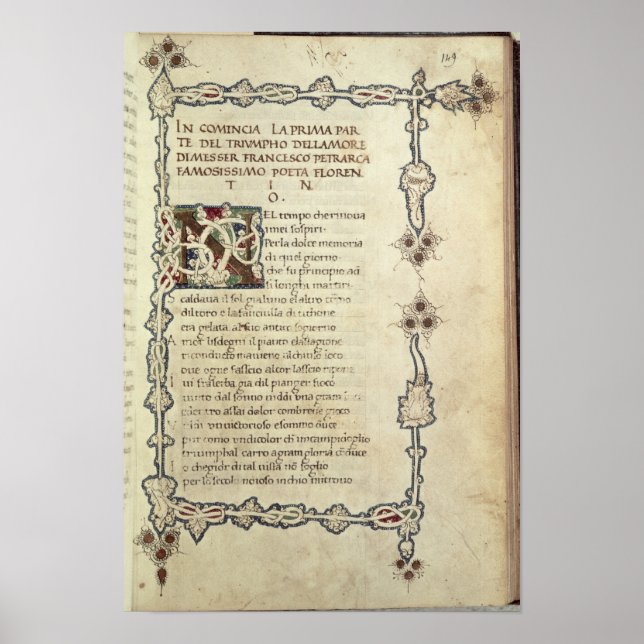 149
IN COMINCIA LA PRIMA PAR
TE DEL TRIVMPHO DELLAMORE
DI MESSER FRANCESCO PETRARCA
FAMOSISSIMO POETA FLOREN
T I N
O.
NEL tempo che rinoua
i miei sospiri
Per la dolce memoria
di quel giorno
che fu principio ad
si longhi martiri
caldaua il sol gia luno el altro corno
di loro e la fanciulla di tithone
era gelata al suo antico sogiorno
Amor li sdegni il pianto e la stagione
ricondutto maueuano al chiuso loco
oue ogne fascio al cor lasso ripone
lui fra lerba gia dil pianger fioco
uinto dal sonno uiddi una gram
dentro assai dolor com breue gioco
Vidi un uictorioso e sommo duce
pur como un di color chi in campidoglio
triumphal carro a gram gloria conduce
Io che gioir di tal uista nō soglio
per lo secolo noioso in chio mi trouo